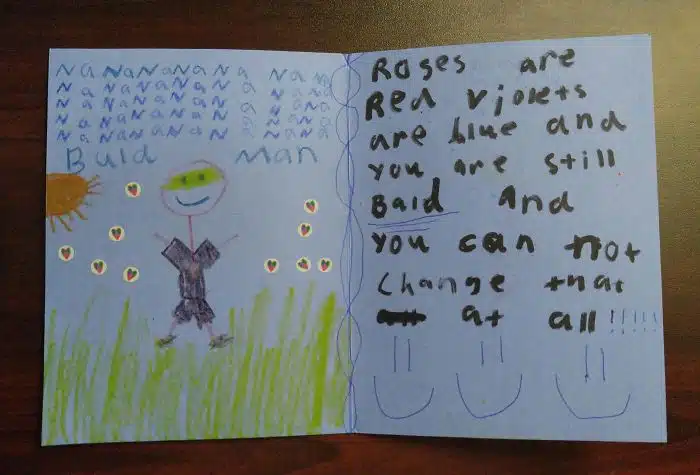 Na NaNaNaNa Na Na Na
Na NaNaNaNa Na Na Na
Na NaNaNaNa Na Na Na
Na NaNaNaNa Na Na Na
Na NaNaNaNa Na Na Na
Bald Man
Roses are
Red violets
are blue and
you are still
Bald And
you can not
Change that
at all !!!!!